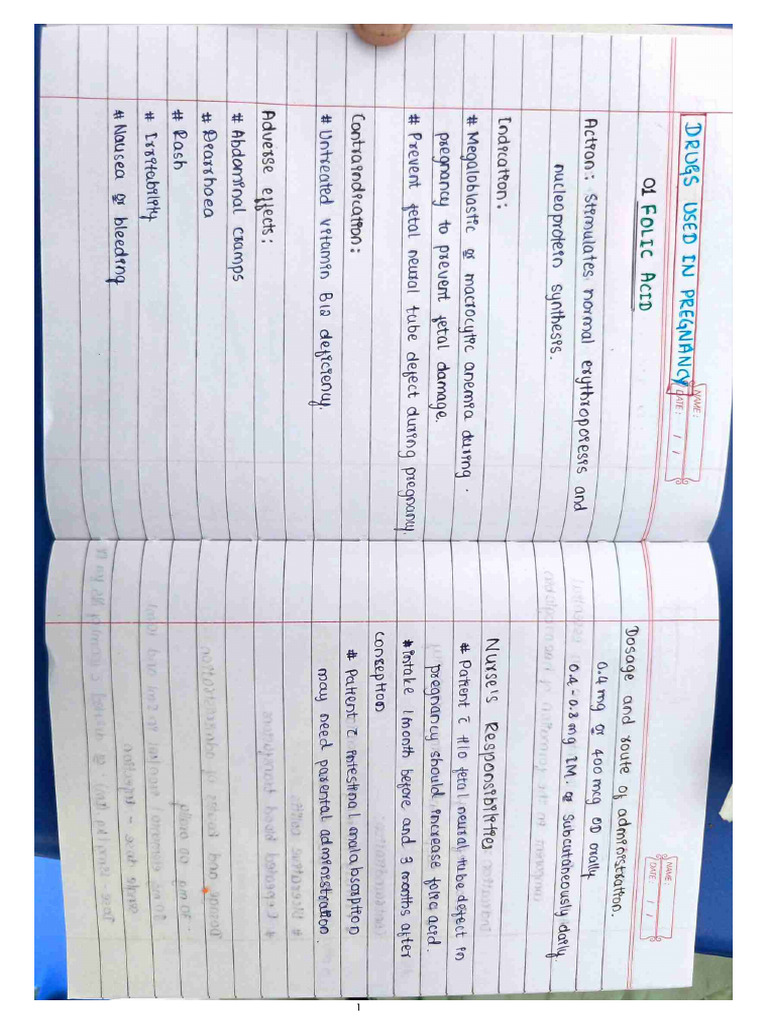 DRUGS USED IN PREGNANCY
NAME:
DATE: / /
01 FOLIC ACID
Action: Stimulates normal erythropoiesis and
nucleoprotein synthesis.
Indication:
# Megaloblastic or macrocytic anemia during
pregnancy to prevent fetal damage.
# Prevent fetal neural tube defect during pregnancy.
Contraindication:
# Untreated vitamin B12 deficiency.
Adverse effects:
# Abdominal cramps
# Diarrhoea
# Rash
# Irritability
# Nausea or bleeding
NAME:
DATE: / /
Dosage and route of administration.
0.4 mg or 400 mcg OD orally
0.4 - 0.8 mg IM. or Subcutaneously daily.
Nurse's Responsibilities
# Patient c̄ H/o fetal neural tube defect in
pregnancy should increase folic acid.
# Intake 1 month before and 3 months after
conseption
# Patient c̄ intestinal malabsorption
may need parental administration.
1